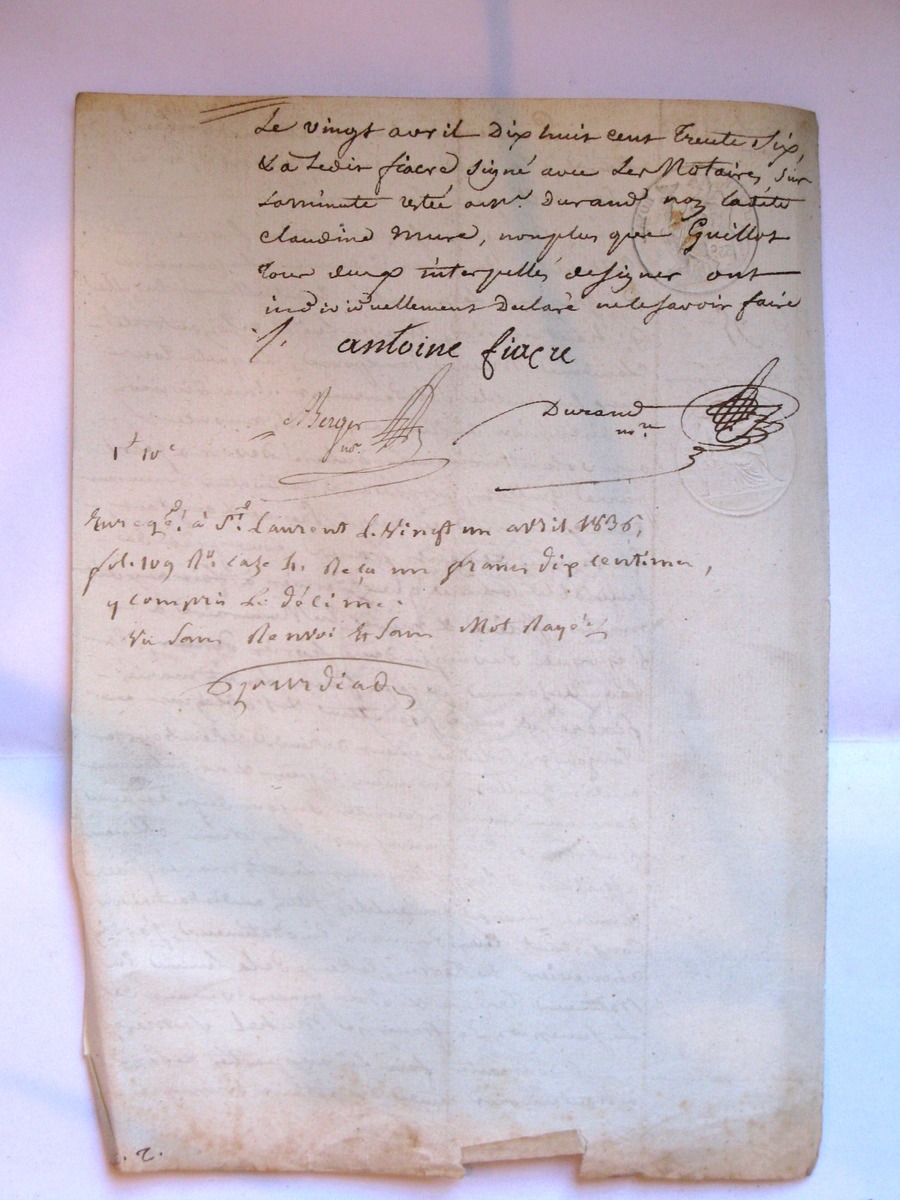 Le vingt avril Dix huit cent Trente Six,
& a Ledit fiacre signé avec Les Notaires, sur
Laminute restée a mr. Durand non Ladite
claudine Mure, nonplus que Guillot
Tour deux interpellés designer ont
individuellement Declaré nelesavoir faire
antoine fiacre
Berger
nore
Durand
nore
1f 10c
Enregé. à St. Laurent le Vingt un avril 1836,
fol. 109 Ro. case 4. Reçu un franc dix centimes,
y compris Le décime.
Vu Sans Renvoi & Sans Mot Rayé